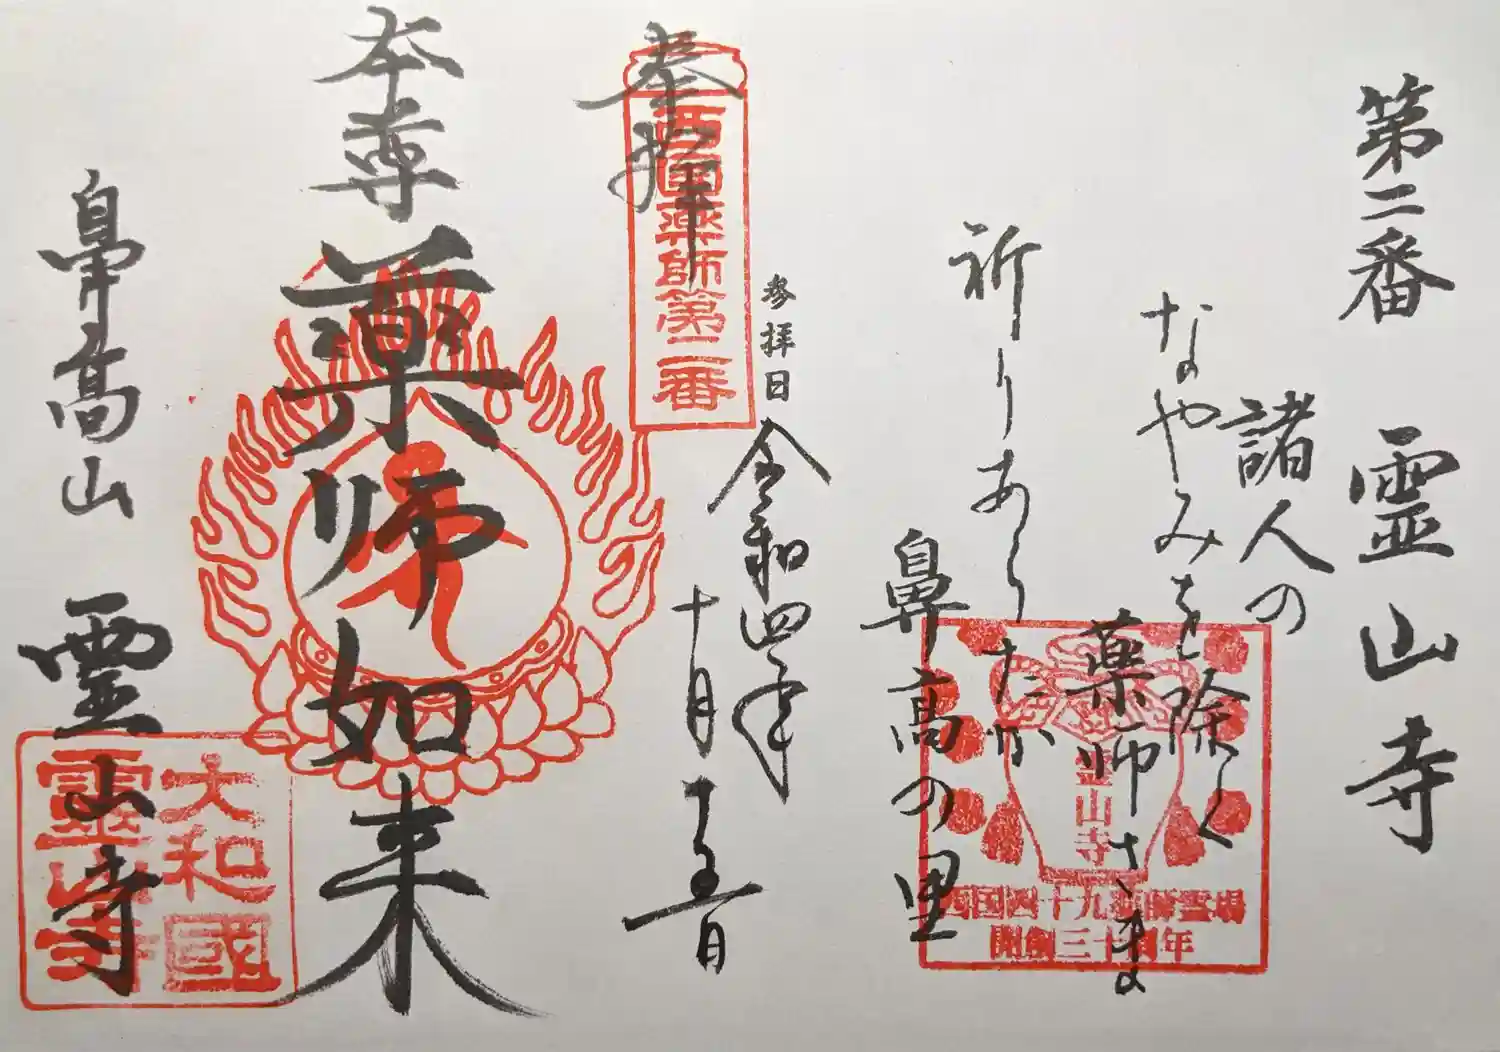 第二番 霊山寺
諸人の
なやみを除く
薬師さま
祈りあらたか
鼻高の里
霊山寺
西国四十九薬師霊場
開創三十周年
参拝日 令和四年
十月十五日
奉拝
西国薬師第二番
本尊 薬师如来
鼻高山 霊山寺
大和國
靈山寺